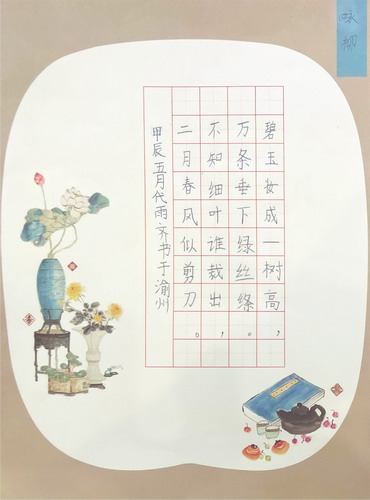 咏柳
碧玉妆成一树高，
万条垂下绿丝绦。
不知细叶谁裁出，
二月春风似剪刀。
甲辰五月代雨齐书于渝州